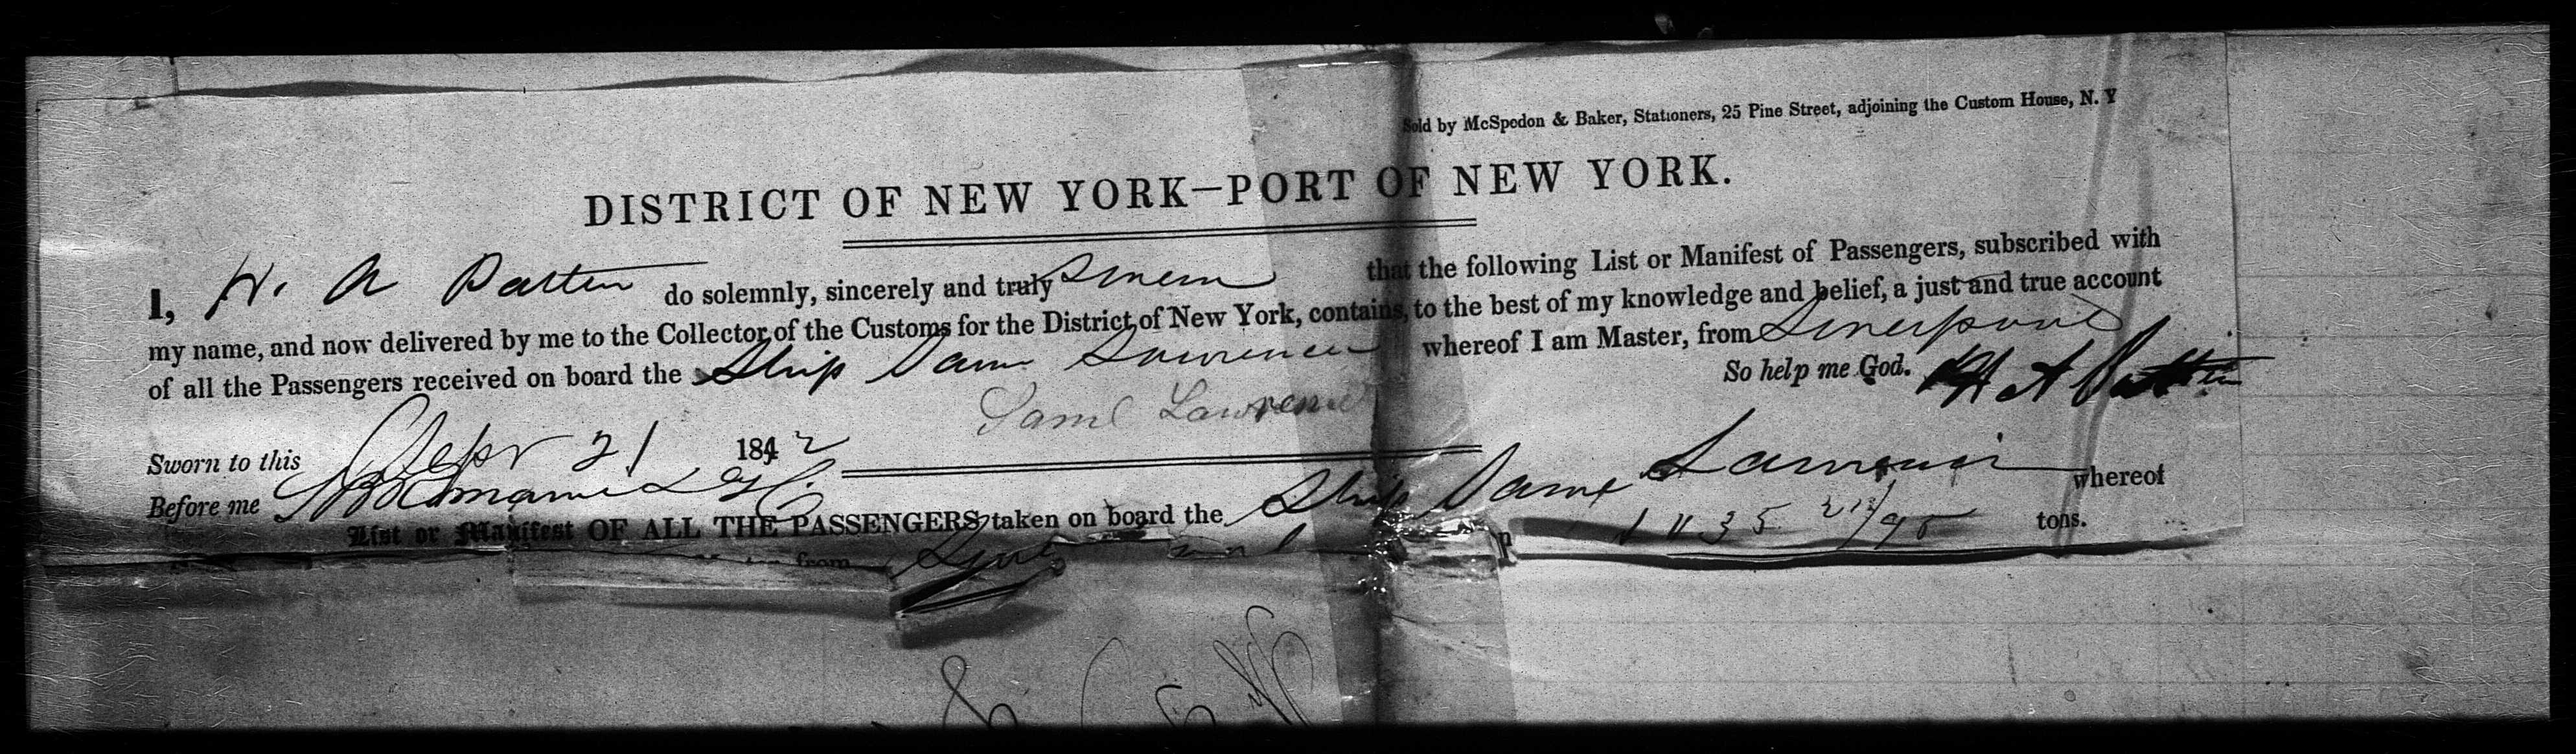 Sold by McSpedon & Baker, Stationers, 25 Pine Street, adjoining the Custom House, N. Y
DISTRICT OF NEW YORK—PORT OF NEW YORK.
I, H. A Patten do solemnly, sincerely and truly swear that the following List or Manifest of Passengers, subscribed with
my name, and now delivered by me to the Collector of the Customs for the District of New York, contains, to the best of my knowledge and belief, a just and true account
of all the Passengers received on board the Ship Saml Lawrence whereof I am Master, from Liverpool
So help me God. H A Patten
Saml Lawrence
Sworn to this Sepr 21 1842
Before me
List or Manifest OF ALL THE PASSENGERS taken on board the Ship Saml Lawrence whereof
from Liverpool 1035 tons.